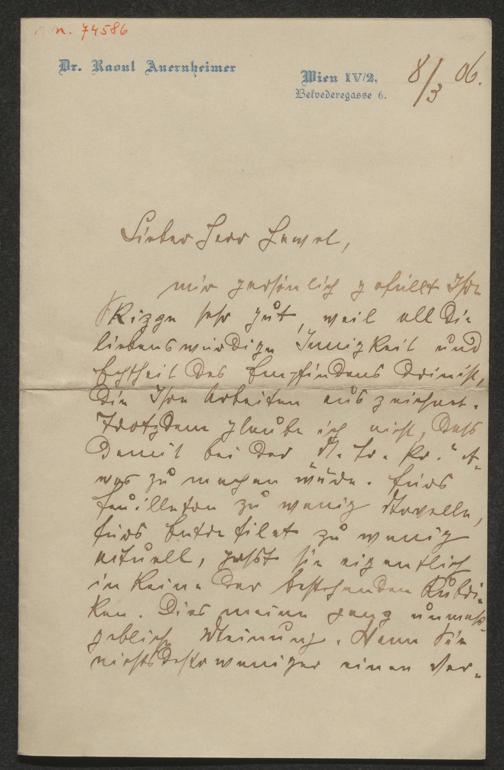 n. 74586
Dr. Raoul Auernheimer
Wien IV/2.
Belvederegasse 6.
8/3 06.
Lieber Herr Hawel,
mir persönlich gefällt Ihre
Skizze sehr gut, weil all die
liebenswürdige Innigkeit und
Echtheit des Empfindens drin ist,
die Ihre Arbeiten auszeichnet.
Trotzdem glaube ich nicht, dass
damit bei der „N. Fr. Pr." et-
was zu machen wäre. Fürs
Feuilleton zu wenig Novelle,
fürs Entrefilet zu wenig
aktuell, passt sie eigentlich
in keine der bestehenden Rubri-
ken. Dies meine ganz unmaß-
gebliche Meinung. Wenn Sie
nichtsdestoweniger einen Ver-